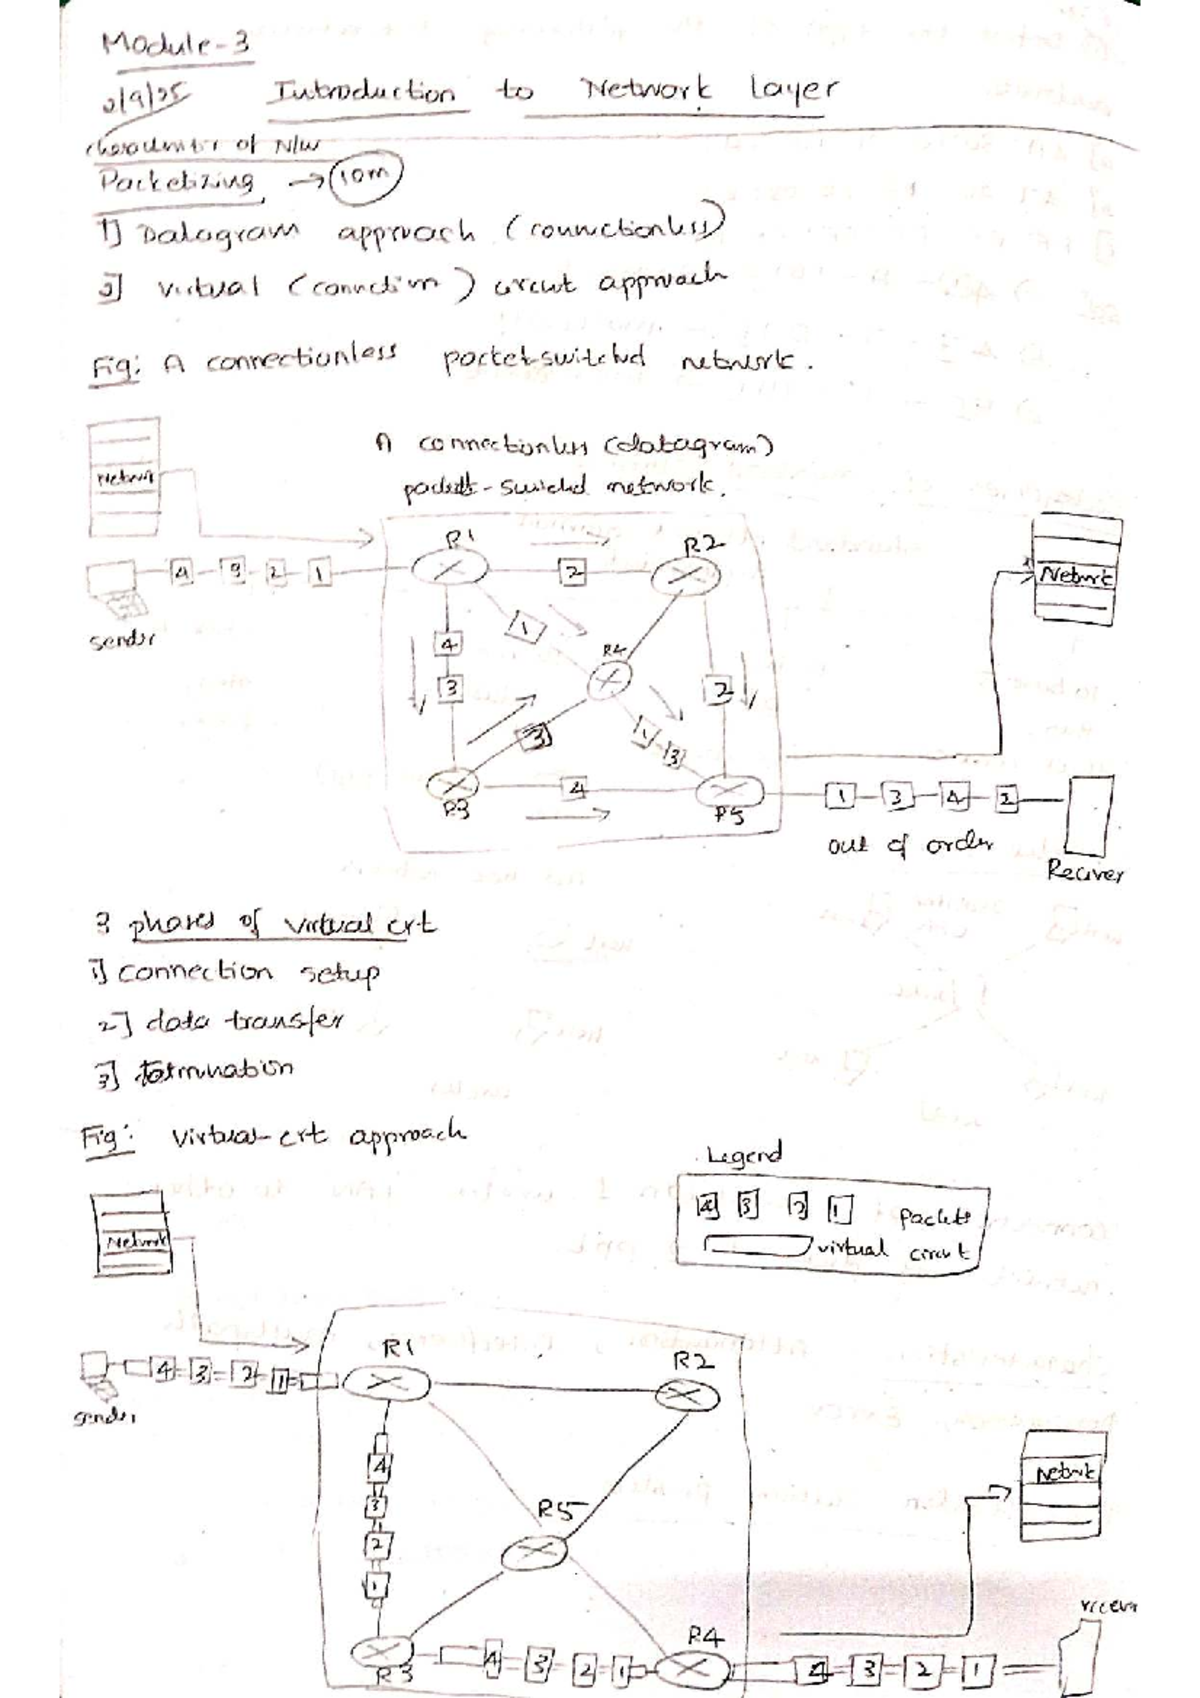 Module-3
2/9/25 Introduction to Network Layer
of N/W
Packetizing → 10m
1] Datagram approach (connectionless)
2] virtual (connection) circuit approach
Fig: A connectionless packet switched network.
A connectionless (datagram)
packet-switched network.
Network
R1
R2
4 3 2 1
2
Network
sender
4
1
R4
3
2
3
1 3
R3
4
R5
1 3 4 2
out of order
Reciver
3 phases of virtual crt
1] connection setup
2] data transfer
3] termination
Fig: virtual-crt approach
Legend
4 3 2 1 packets
virtual circuit
Network
R1
R2
4 3 2 1
sender
4
3
2
1
R5
Network
R3
4 3 2 1
R4
4 3 2 1